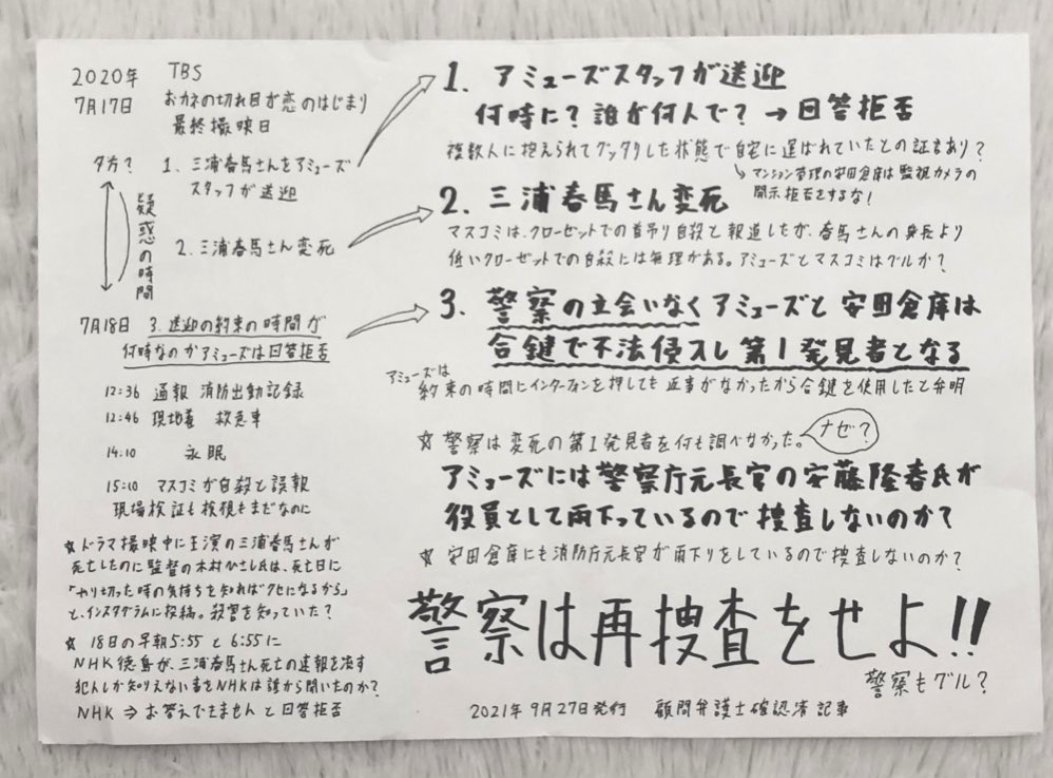 2020年 TBS
7月17日 おカネの切れ目が恋のはじまり
最終撮映日
夕方?
1. 三浦春馬さんをアミューズ
スタッフが送迎
疑惑の時間
2. 三浦春馬さん変死
7月18日 3. 送迎の約束の時間が
何時なのかアミューズは回答拒否
12:36 通報 消防出動記録
12:46 現地着 救急車
14:10 永眠
15:10 マスコミが自殺と誤報
現場検証も検視もまだなのに
☆ドラマ撮映中に主演の三浦春馬さんが
死亡したのに監督の木村ひさし氏は、死亡日に
「やり切った時の気持ちを知ればクセになるから」
と、インスタグラムに投稿。殺害を知っていた?
☆ 18日の早朝5:55 と 6:55に
NHK徳島が、三浦春馬さん死亡の速報を流す
犯人しか知りえない事をNHKは誰から聞いたのか?
NHK ⇒ お答えできませんと回答拒否
1. アミューズスタッフが送迎
何時に?誰が何人で?→回答拒否
複数人に抱えられてグッタリした状態で自宅に運ばれていたとの証言あり?
マンション管理の安田倉庫は監視カメラの
開示拒否をするな!
2. 三浦春馬さん変死
マスコミは、クローゼットでの首吊り自殺と報道したが、春馬さんの身長より
低いクローゼットでの自殺には無理がある。アミューズとマスコミはグルか?
3. 警察の立会いなくアミューズと安田倉庫は
合鍵で不法侵入し第1発見者となる
アミューズは
約束の時間にインターフォンを押しても返事がなかったから合鍵を使用したと弁明
☆ 警察は変死の第1発見者を何も調べなかった。
ナゼ?
アミューズには警察庁元長官の安藤隆春氏が
役員として雨下っているので捜査しないのか?
☆ 安田倉庫にも消防庁元長官が雨下りをしているので捜査しないのか?
警察は再捜査をせよ!!
警察もグル?
2021年9月27日発行 顧問弁護士確認済記事